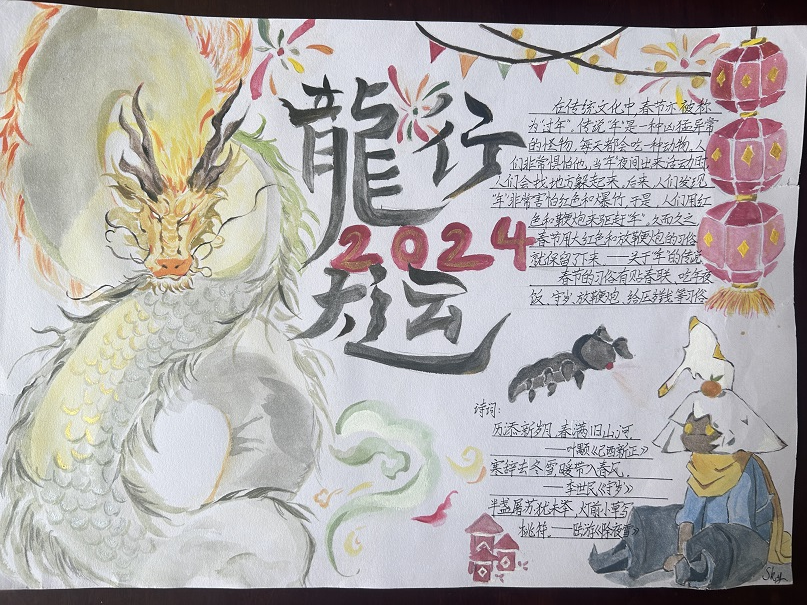 龍行
2024
大运
在传统文化中,春节亦被称
为“过年”。传说“年”是一种凶猛异常
的怪物,每天都会吃一种动物,人
们非常惧怕他,当“年”夜间出来活动时,
人们会找地方躲起来,后来,人们发现
“年”非常害怕红色和爆竹,于是,人们用红
色和鞭炮来驱赶“年”,久而久之
春节用大红色和放鞭炮的习俗
就保留了下来。——关于“年”的传说
春节的习俗有贴春联,吃年夜
饭,守岁,放鞭炮,给压岁钱等习俗
诗词:
历添新岁月,春满旧山河
——叶颙《己酉新正》
寒辞去冬雪,暖带入春风。
——李世民《守岁》
半盏屠苏犹未举,灯前小草写
桃符。——陆游《除夜雪》